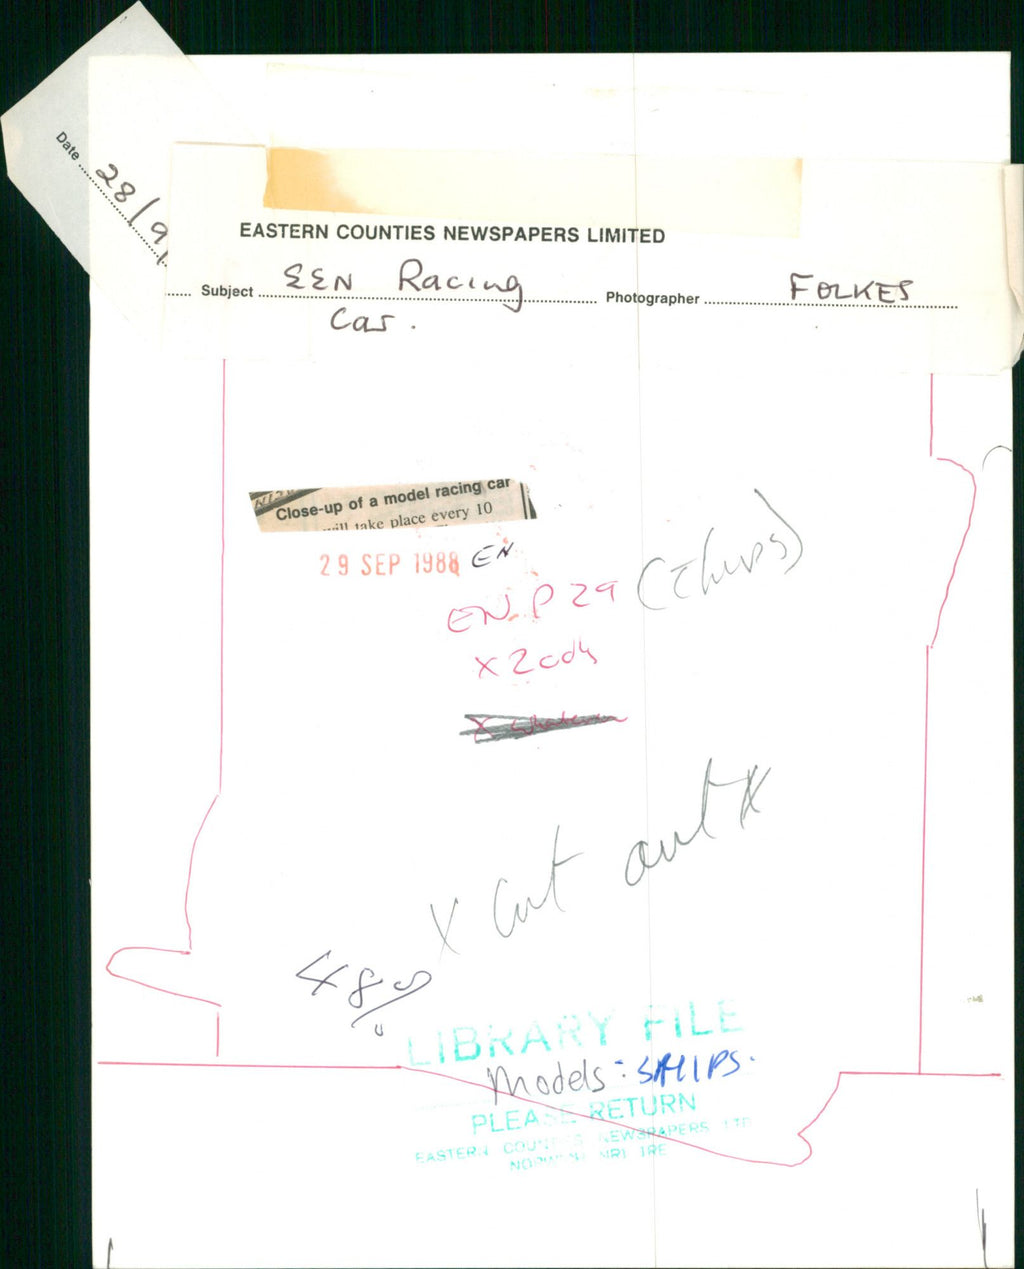 Date 28/9/
EASTERN COUNTIES NEWSPAPERS LIMITED
Subject EEN Racing Photographer FOLKES
Car.
Close-up of a model racing car
will take place every 10
29 SEP 1988 EN
EN P 29 (Thurs)
X 2 cols
X Cut out X
48
LIBRARY FILE
Models: SHIPS.
PLEASE RETURN
EASTERN COUNTIES NEWSPAPERS LTD
NORWICH NR1 1RE